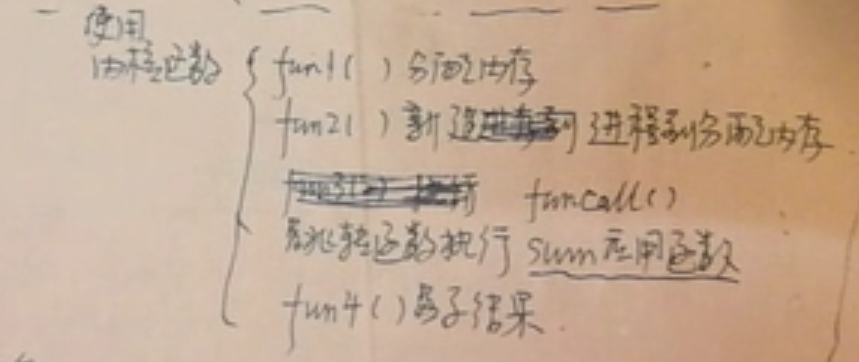 使用
内核函数 { fun1( ) 分配内存
fun2( ) 新建 进程到分配内存
funcall()
跳转函数执行 sum应用函数
fun4( ) 显示结果.